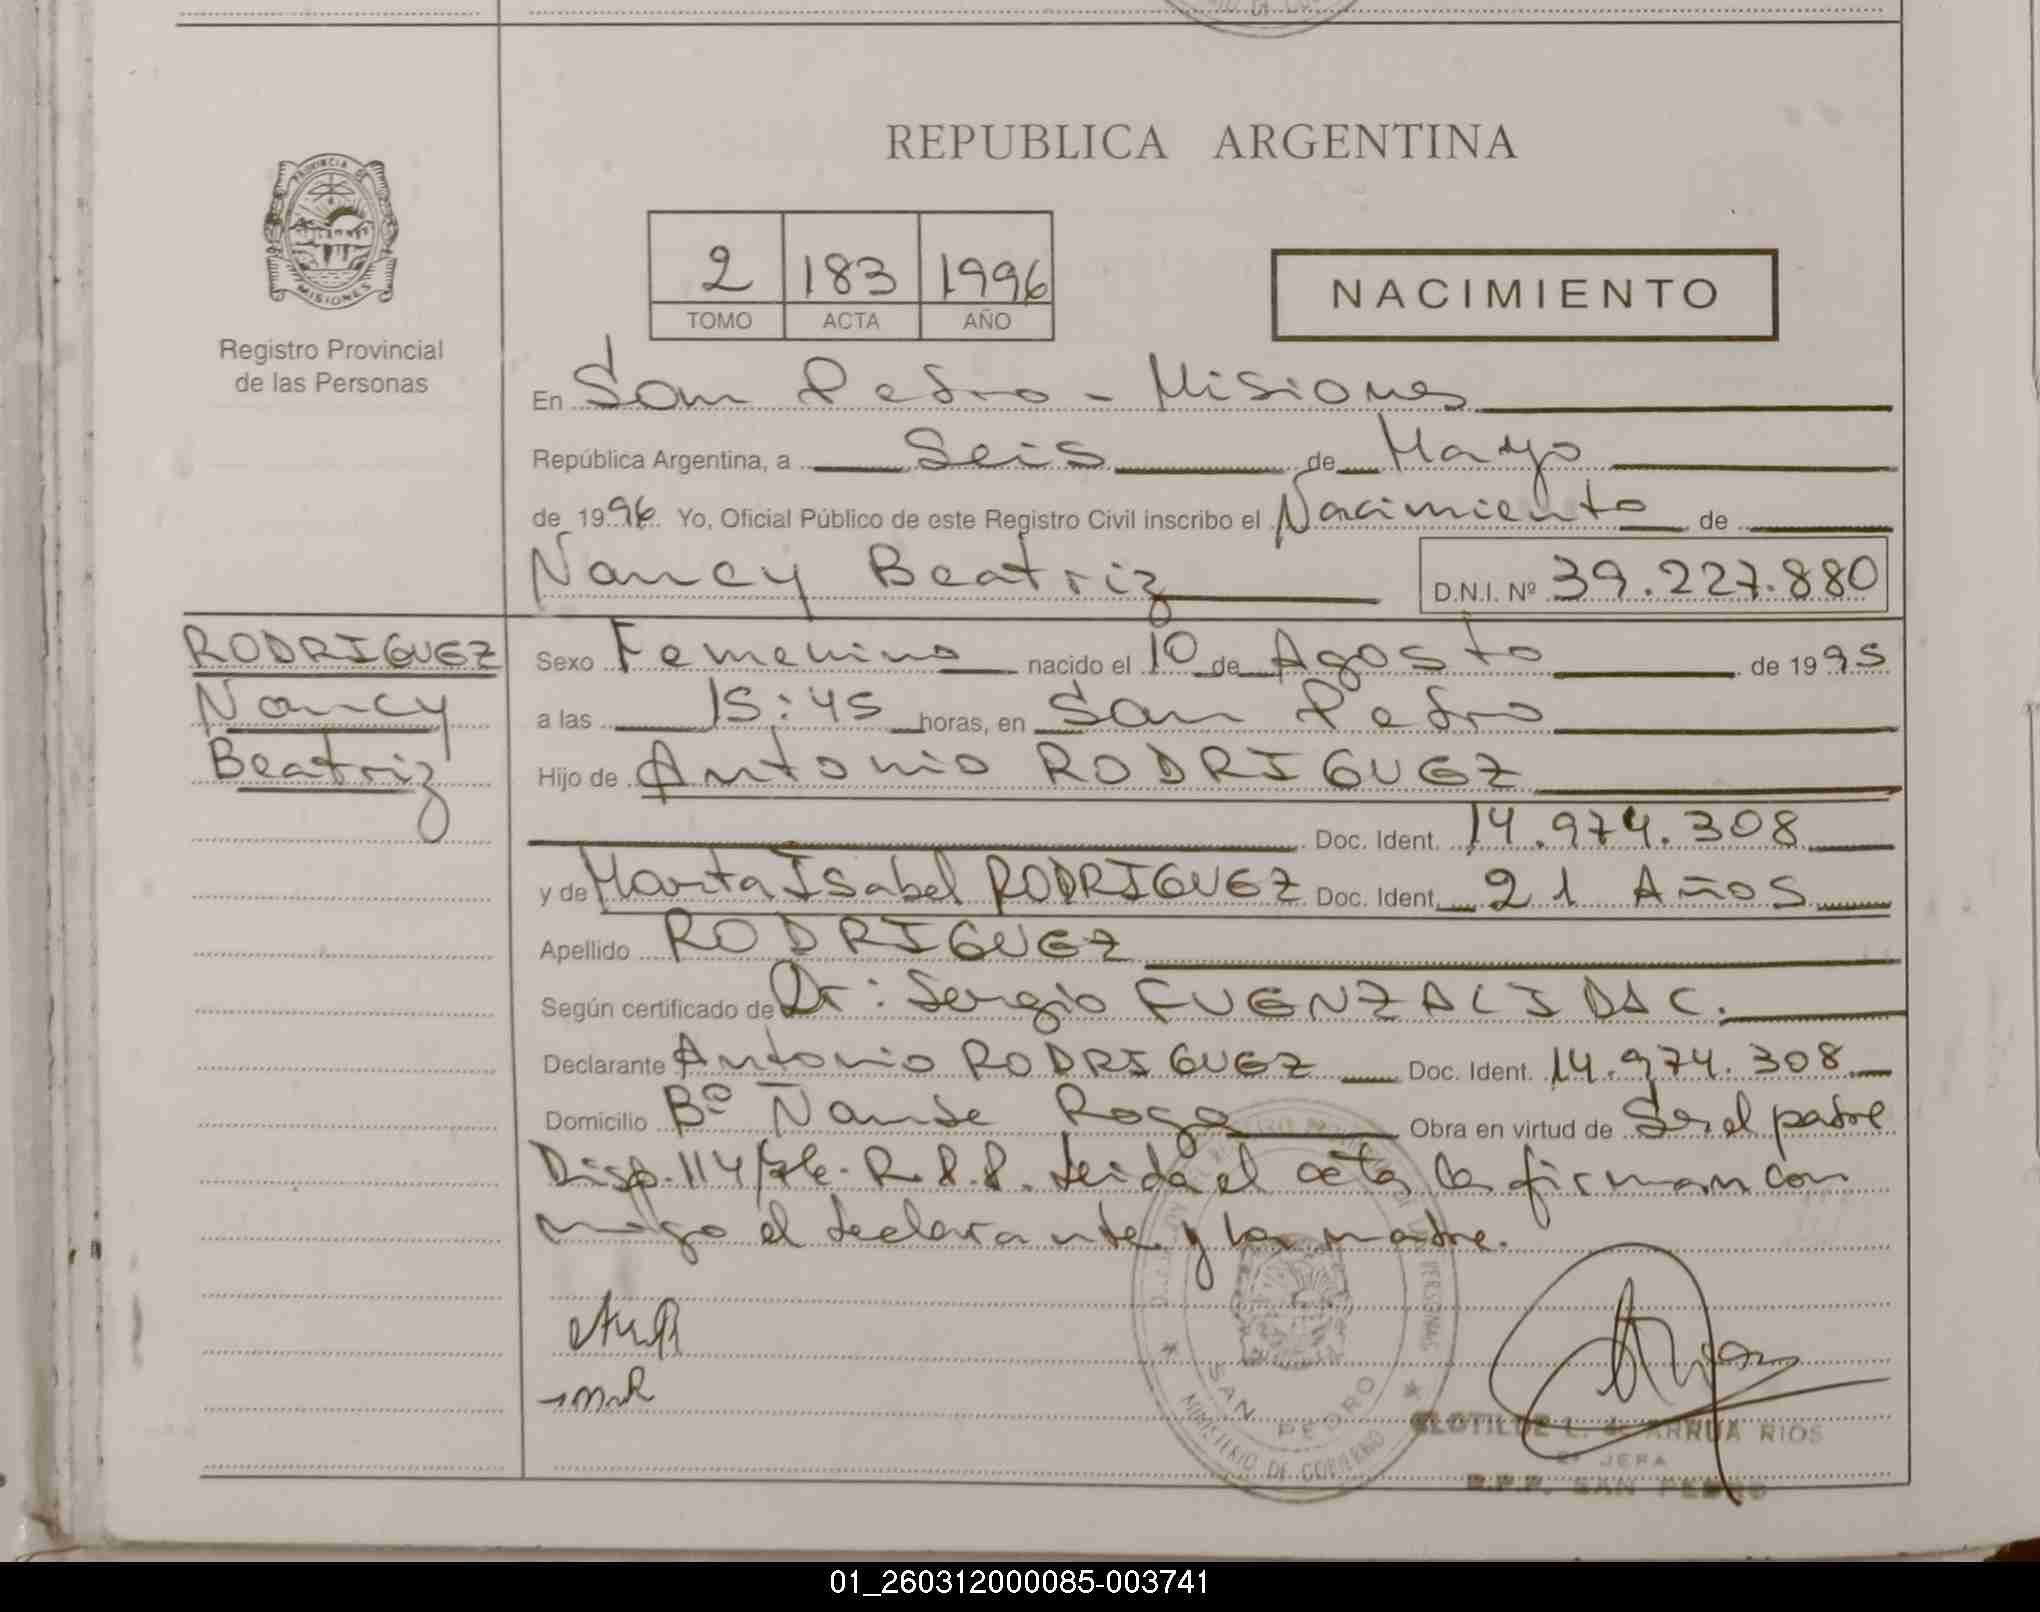 REPUBLICA ARGENTINA
PROVINCIA DE MISIONES
Registro Provincial
de las Personas
2 183 1996
TOMO ACTA AÑO
NACIMIENTO
En San Pedro - Misiones
República Argentina, a Seis de Mayo
de 1996. Yo, Oficial Público de este Registro Civil inscribo el Nacimiento de
Nancy Beatriz D.N.I. Nº 39.227.880
RODRIGUEZ
Nancy
Beatriz
Sexo Femenino nacido el 10 de Agosto de 1995
a las 15:45 horas, en San Pedro
Hijo de Antonio RODRIGUEZ
Doc. Ident. 14.974.308
y de Marta Isabel RODRIGUEZ Doc. Ident. 21 Años
Apellido RODRIGUEZ
Según certificado de Dr: Sergio FUENZALIDA C.
Declarante Antonio RODRIGUEZ Doc. Ident. 14.974.308
Domicilio Bº Ñande Roga Obra en virtud de Ser el padre
Disp. 114/76. R.P.P. Leida el acta la firman con
migo el declarante y la madre.
SAN PEDRO
MINISTERIO DE GOBIERNO
CLOTILDE L. de ARRUA RIOS
2º JEFA
R.P.P. SAN PEDRO
01_260312000085-003741